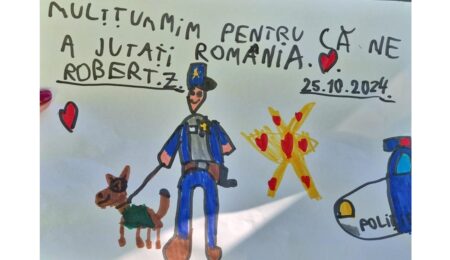 MULȚUMIM PENTRU CĂ NE
A JUTAȚI ROMÂNIA.
ROBERT.Z
25.10.2024
POLIȚ